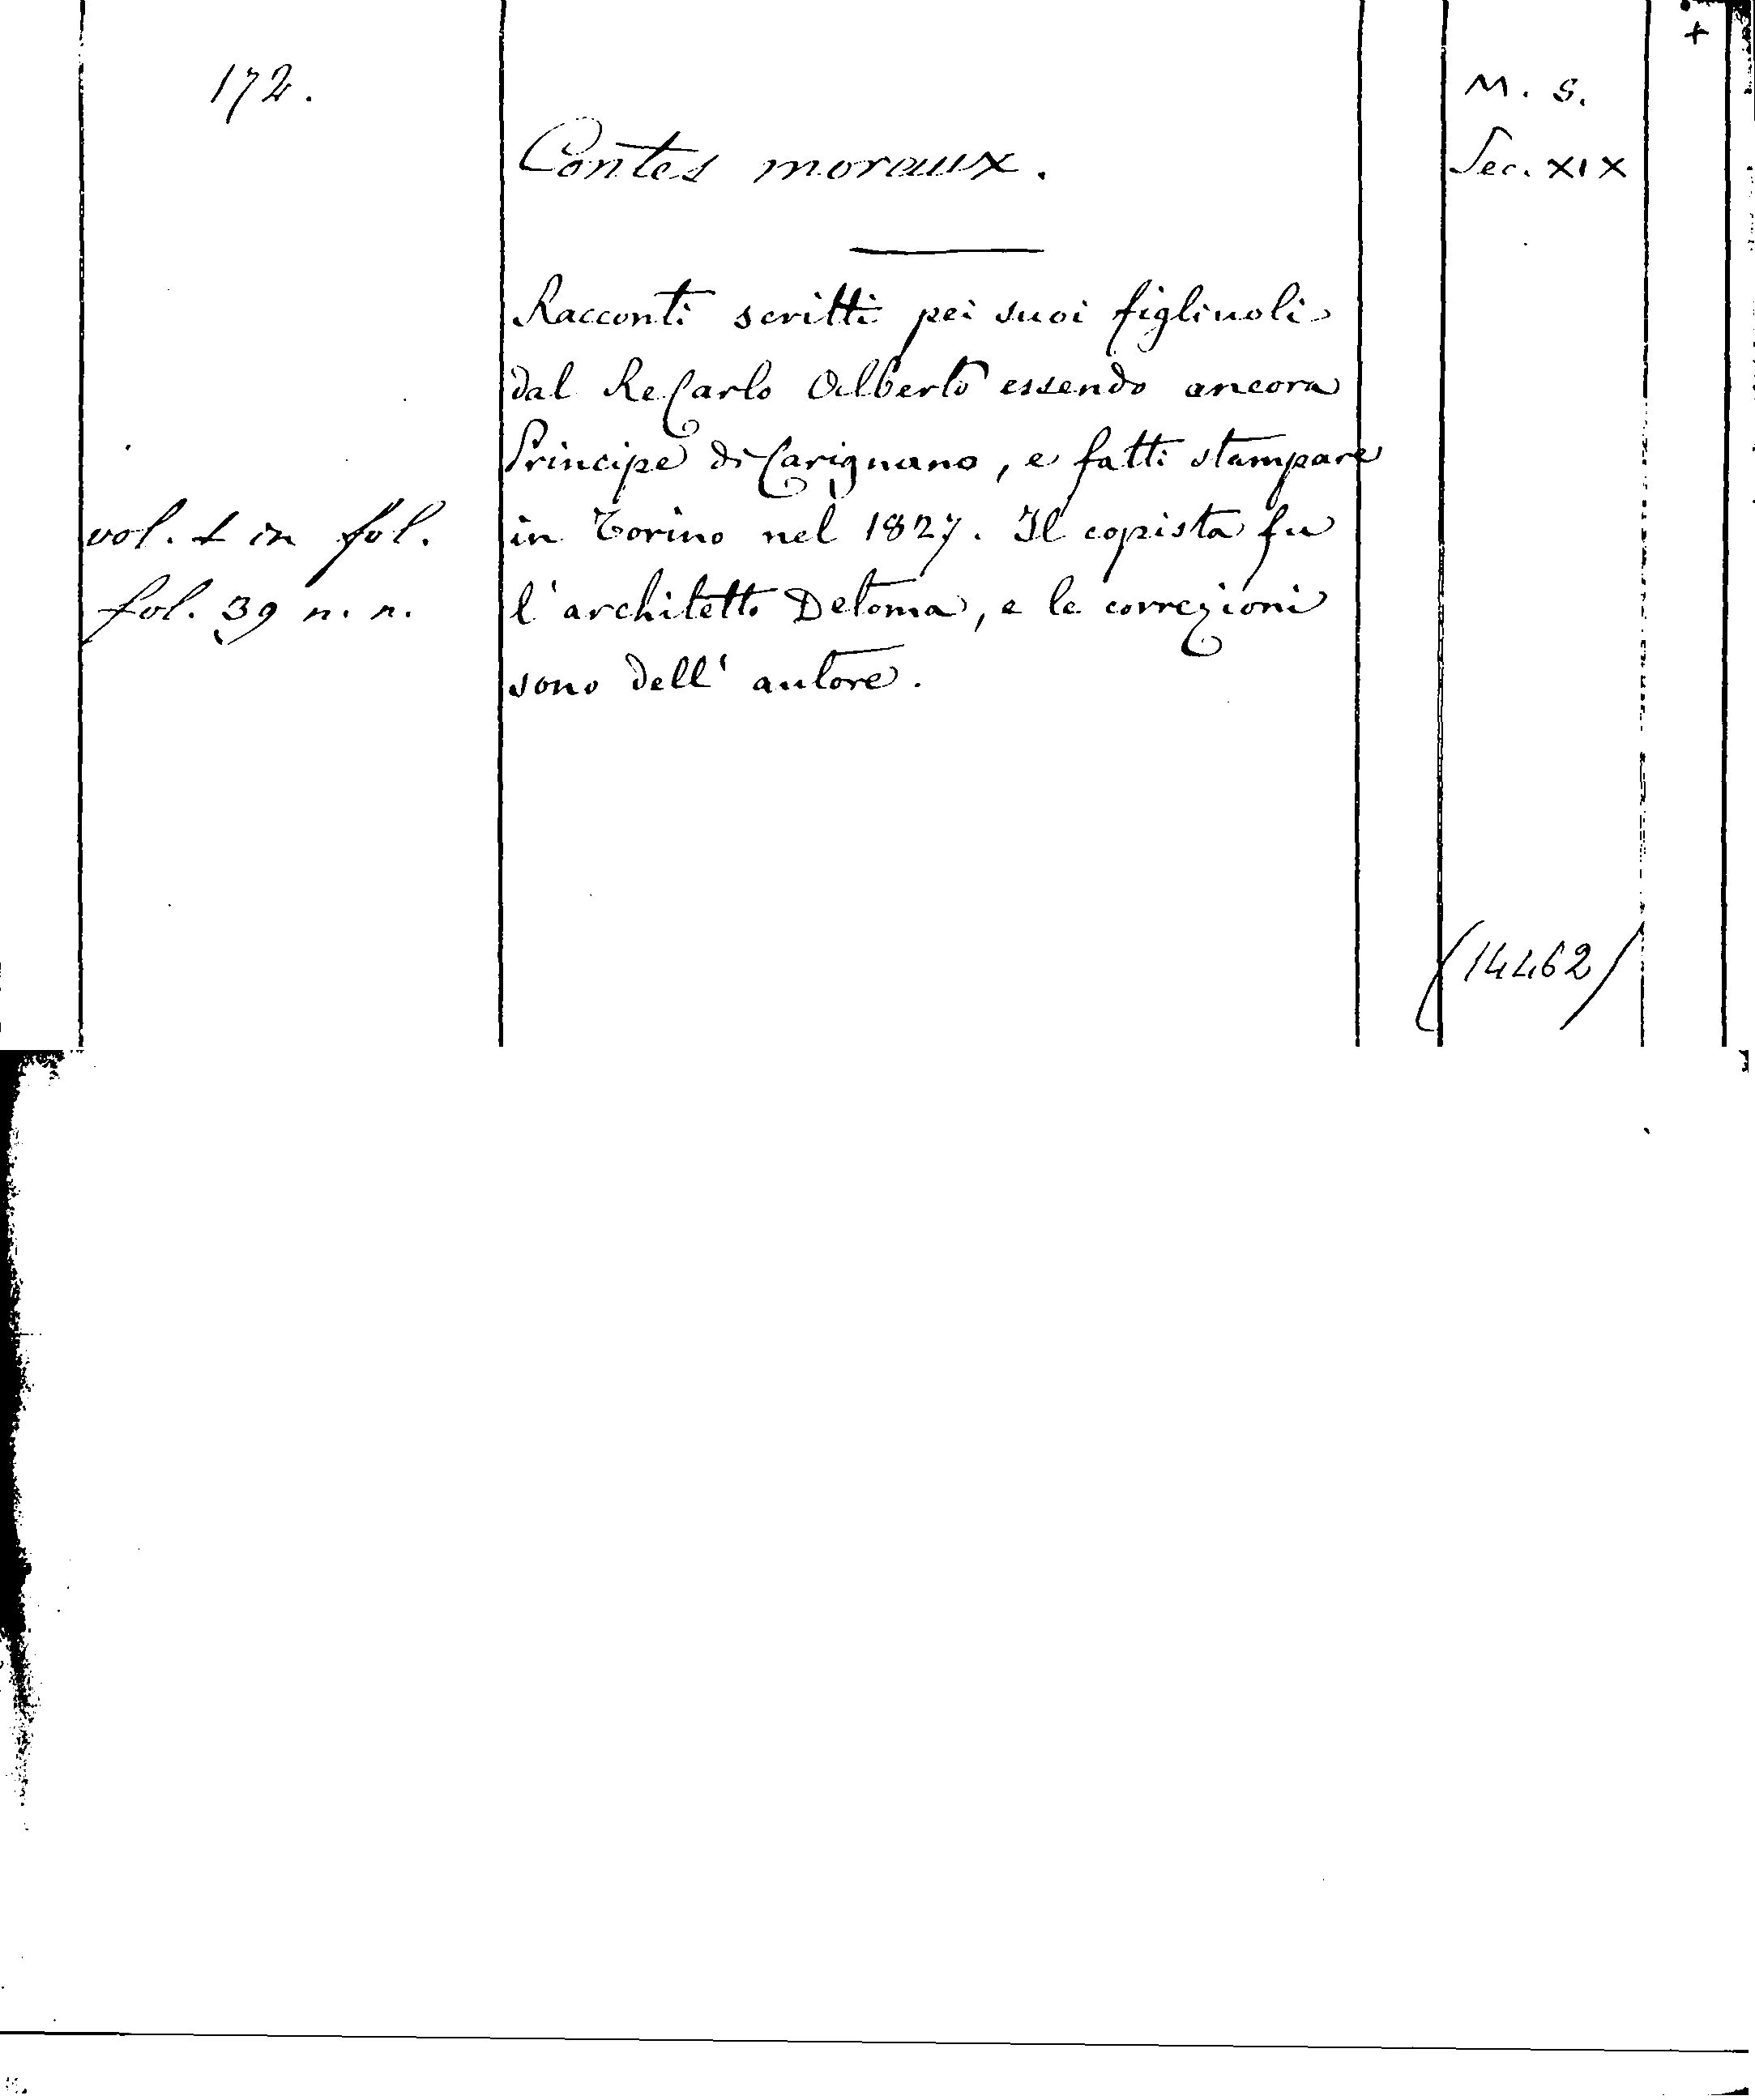 172.
Contes moraux.
M. S.
Sec. XIX
+
Racconti scritti pei suoi figliuoli
dal Re Carlo Alberto essendo ancora
Principe di Carignano, e fatti stampare
in Torino nel 1827. Il copista fu
l'architetto Detoma, e le correzioni
sono dell' autore.
vol. 1 in fol.
fol. 39 n. n.
(14462)